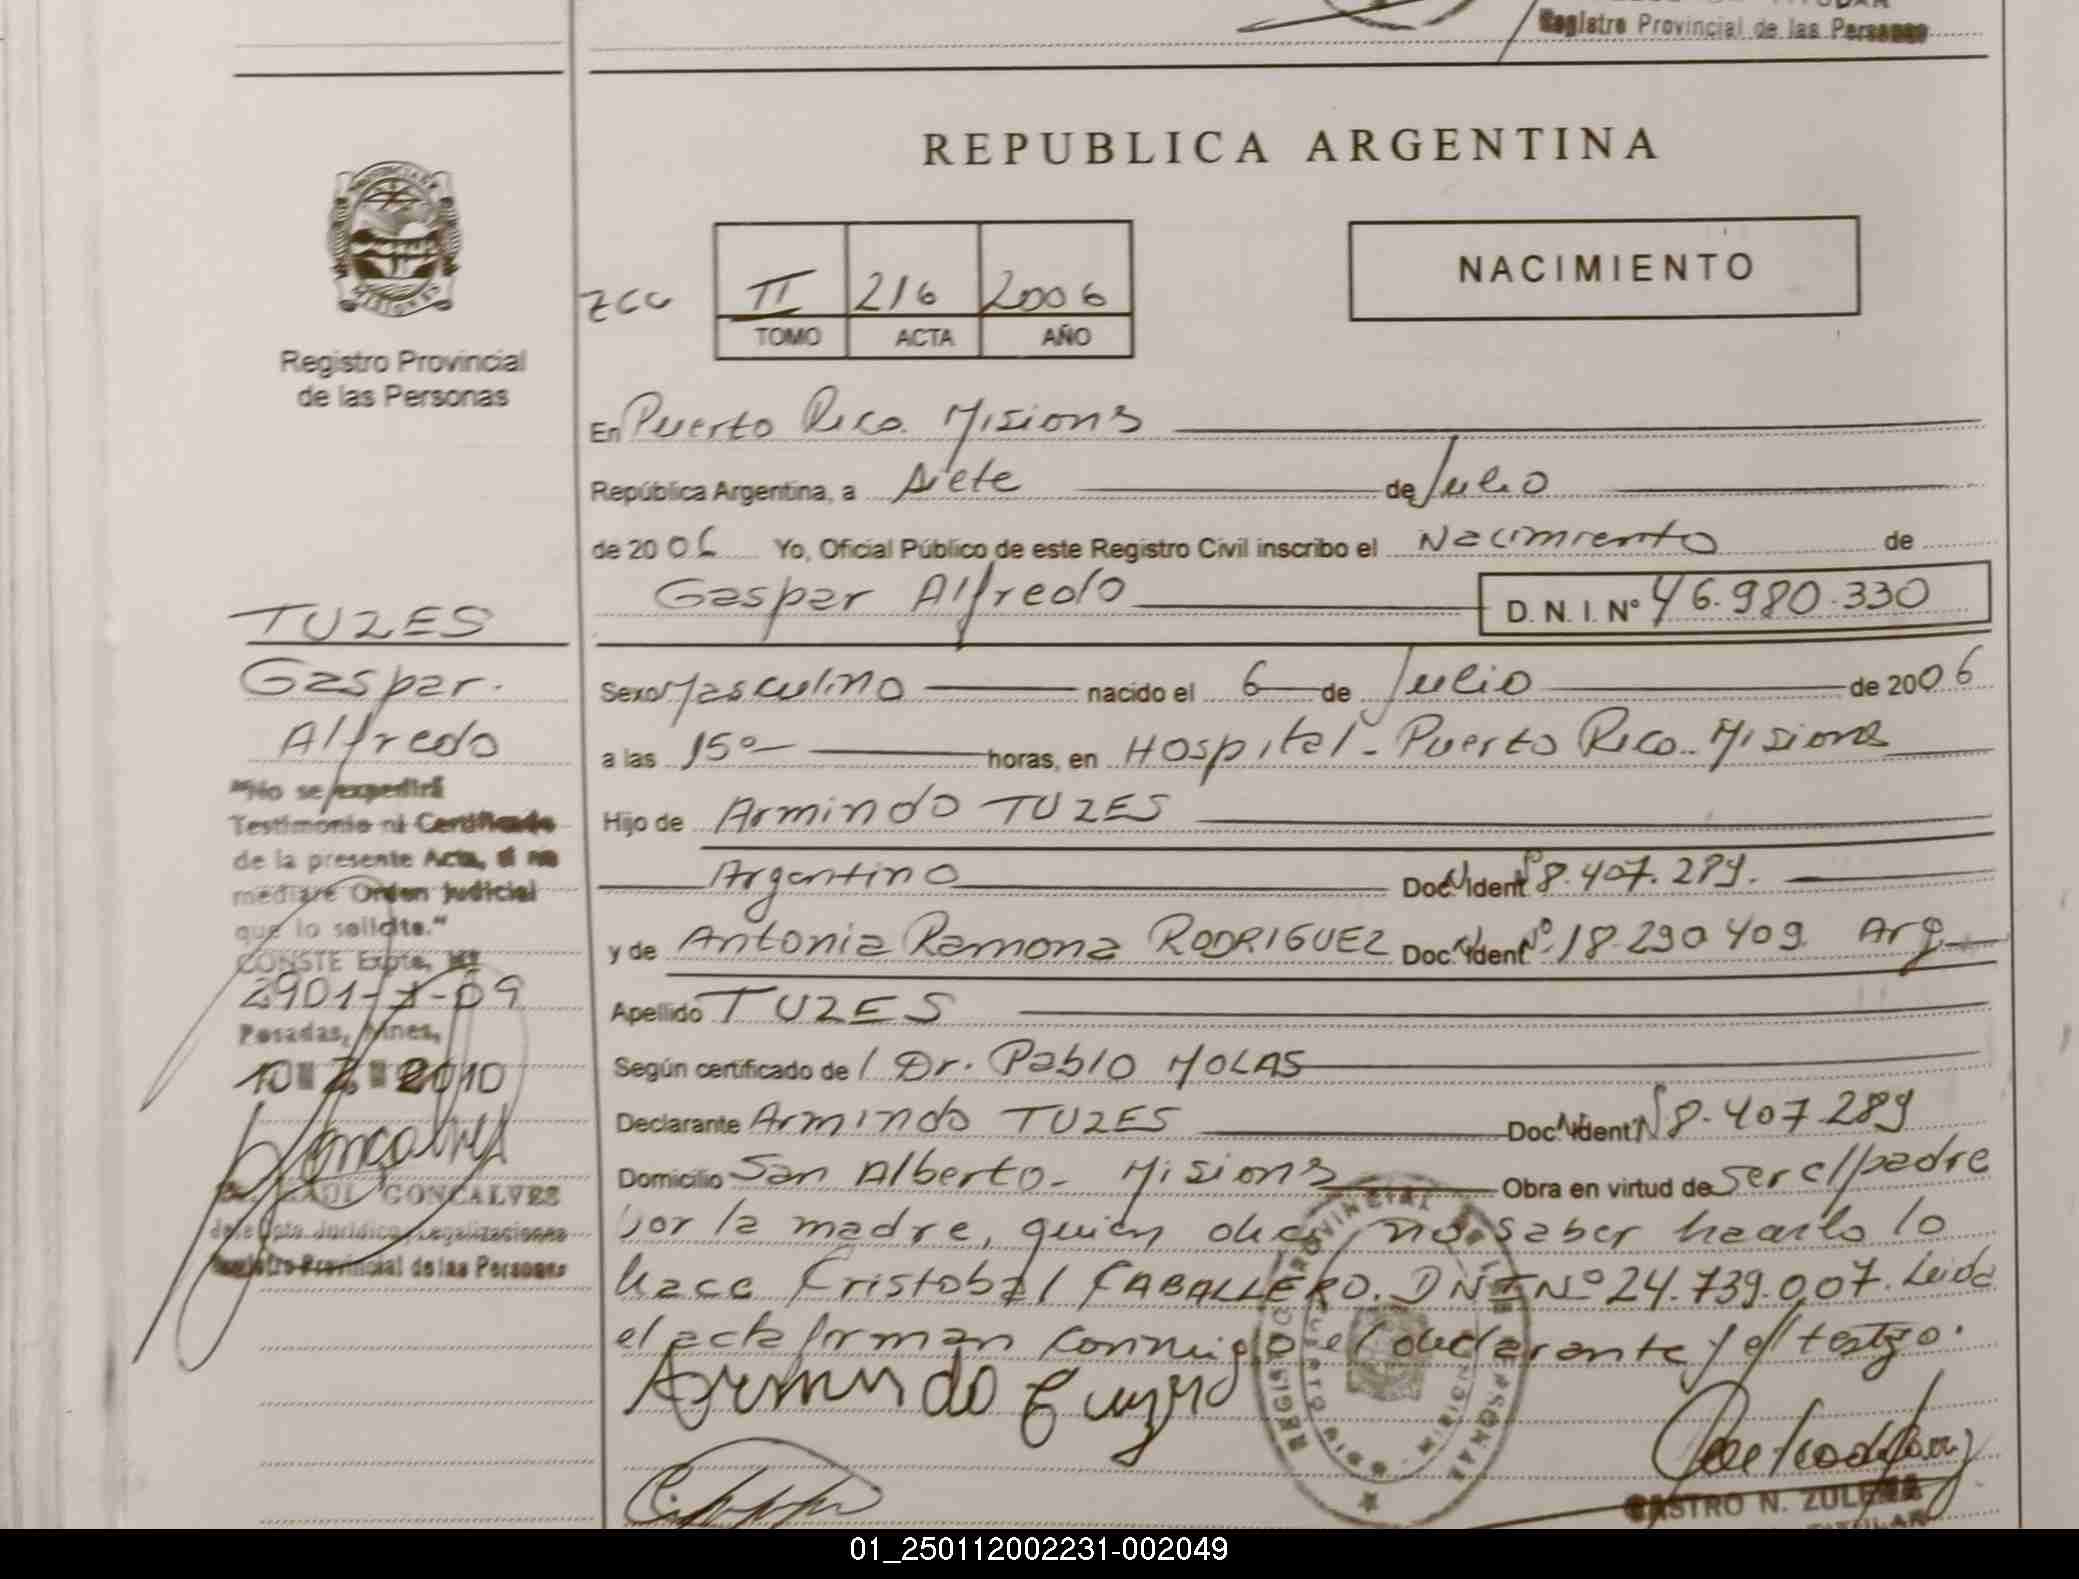 Registro Provincial de las Personas
REPUBLICA ARGENTINA
NACIMIENTO
II 216 2006
TOMO ACTA AÑO
Registro Provincial
de las Personas
En Puerto Rico. Misiones
República Argentina, a siete de Julio
de 2006 Yo, Oficial Público de este Registro Civil inscribo el Nacimiento de
Gaspar Alfredo D. N. I. Nº 46.980.330
TUZES
Gaspar.
Alfredo
Sexo Masculino nacido el 6 de Julio de 2006
a las 15º horas, en Hospital - Puerto Rico. Misiones
Hijo de Armindo TUZES
Argentino Doc. Ident Nº 8.407.289.
y de Antonia Ramona RODRIGUEZ Doc. Ident Nº 18.290.409. Arg
Apellido TUZES
Según certificado de Dr. Pablo MOLAS
Declarante Armindo TUZES Doc. Ident Nº 8.407.289
Domicilio San Alberto - Misiones Obra en virtud de Ser el padre
por la madre, quien dice no saber hacerlo lo
hace Cristobal CABALLERO. DNI Nº 24.739.007. Leida
el acta firman conmigo el declarante y el testigo.
"No se expedirá
Testimonio ni Certificado
de la presente Acta, si no
mediare Orden Judicial
que lo solicite."
CONSTE Expte. Nº
2901-
Posadas, Mnes,
10 2010
GONCALVES
Registro Provincial de las Personas
CASTRO N. ZULEMA
TITULAR
01_250112002231-002049